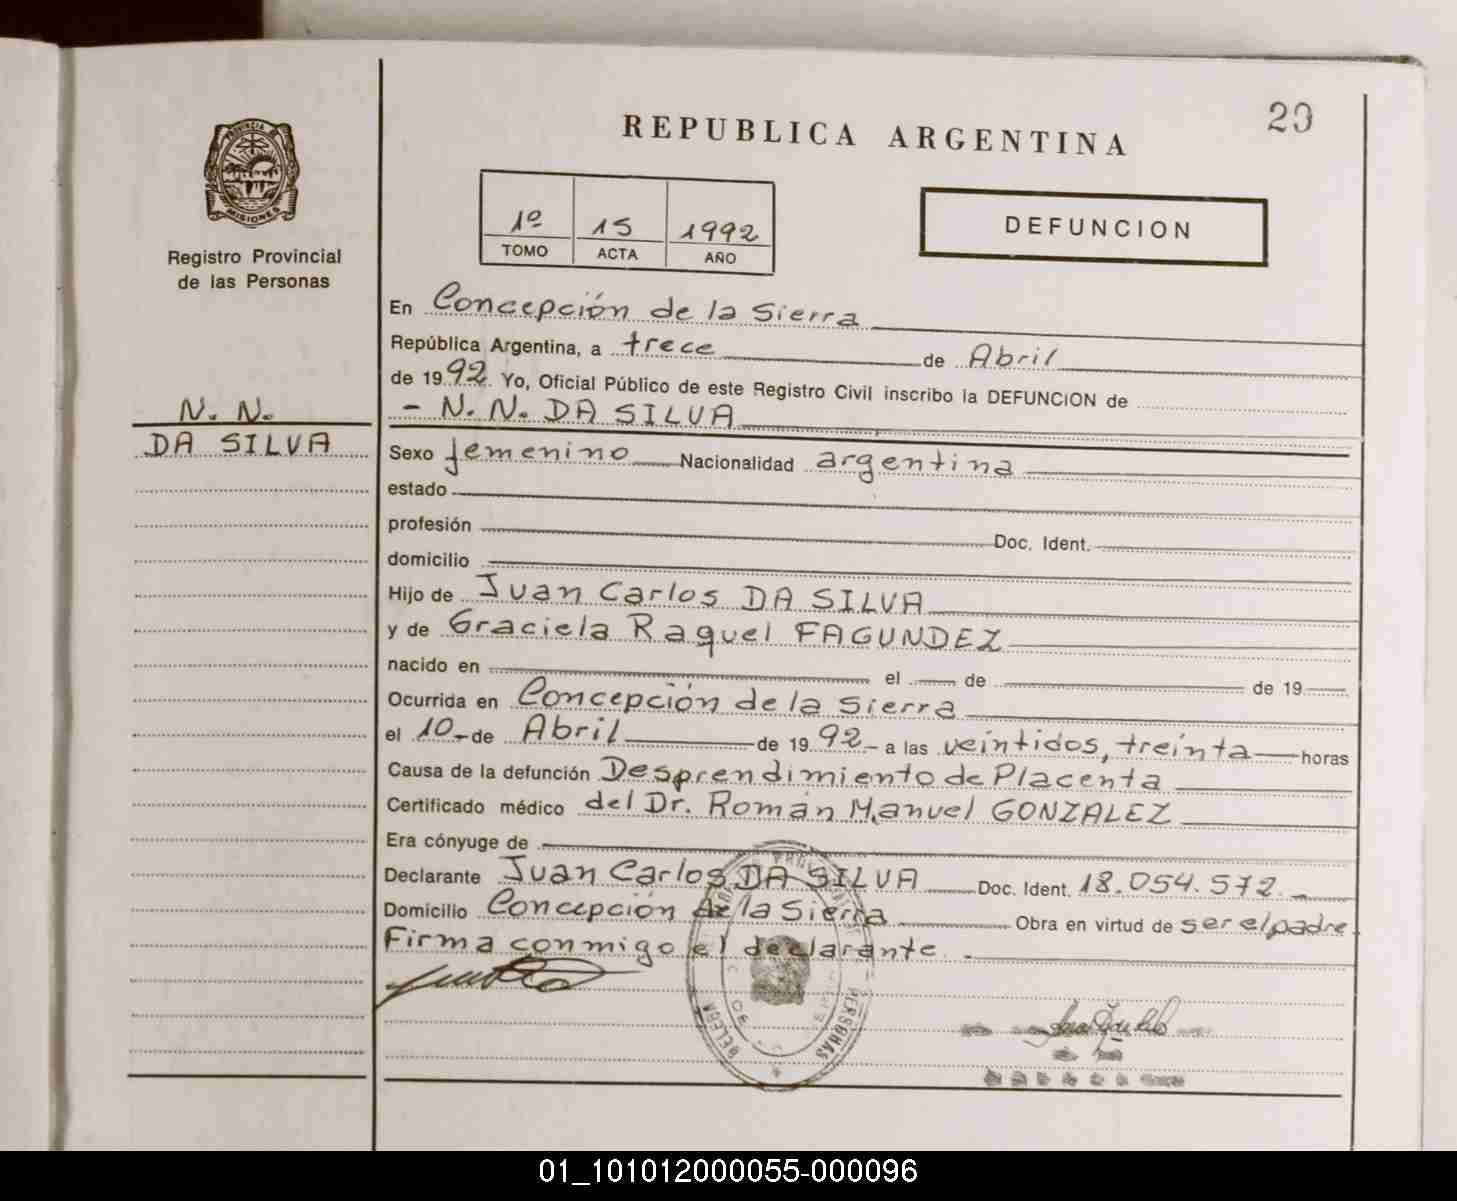 29
REPUBLICA ARGENTINA
PROVINCIA DE
MISIONES
Registro Provincial
de las Personas
1º 15 1992
TOMO ACTA AÑO
DEFUNCION
En Concepción de la Sierra
República Argentina, a trece de Abril
de 1992. Yo, Oficial Público de este Registro Civil inscribo la DEFUNCION de
N. N.
DA SILVA
- N. N. DA SILVA
Sexo femenino Nacionalidad argentina
estado
profesión Doc. Ident.
domicilio
Hijo de Juan Carlos DA SILVA
y de Graciela Raquel FAGUNDEZ
nacido en el de de 19
Ocurrida en Concepción de la Sierra
el 10-de Abril de 1992- a las veintidos, treinta horas
Causa de la defunción Desprendimiento de Placenta
Certificado médico del Dr. Román Manuel GONZALEZ
Era cónyuge de
Declarante Juan Carlos DA SILVA Doc. Ident. 18.054.572.-
Domicilio Concepción de la Sierra Obra en virtud de ser el padre.
Firma conmigo el declarante. -
PERSONAS
01_101012000055-000096